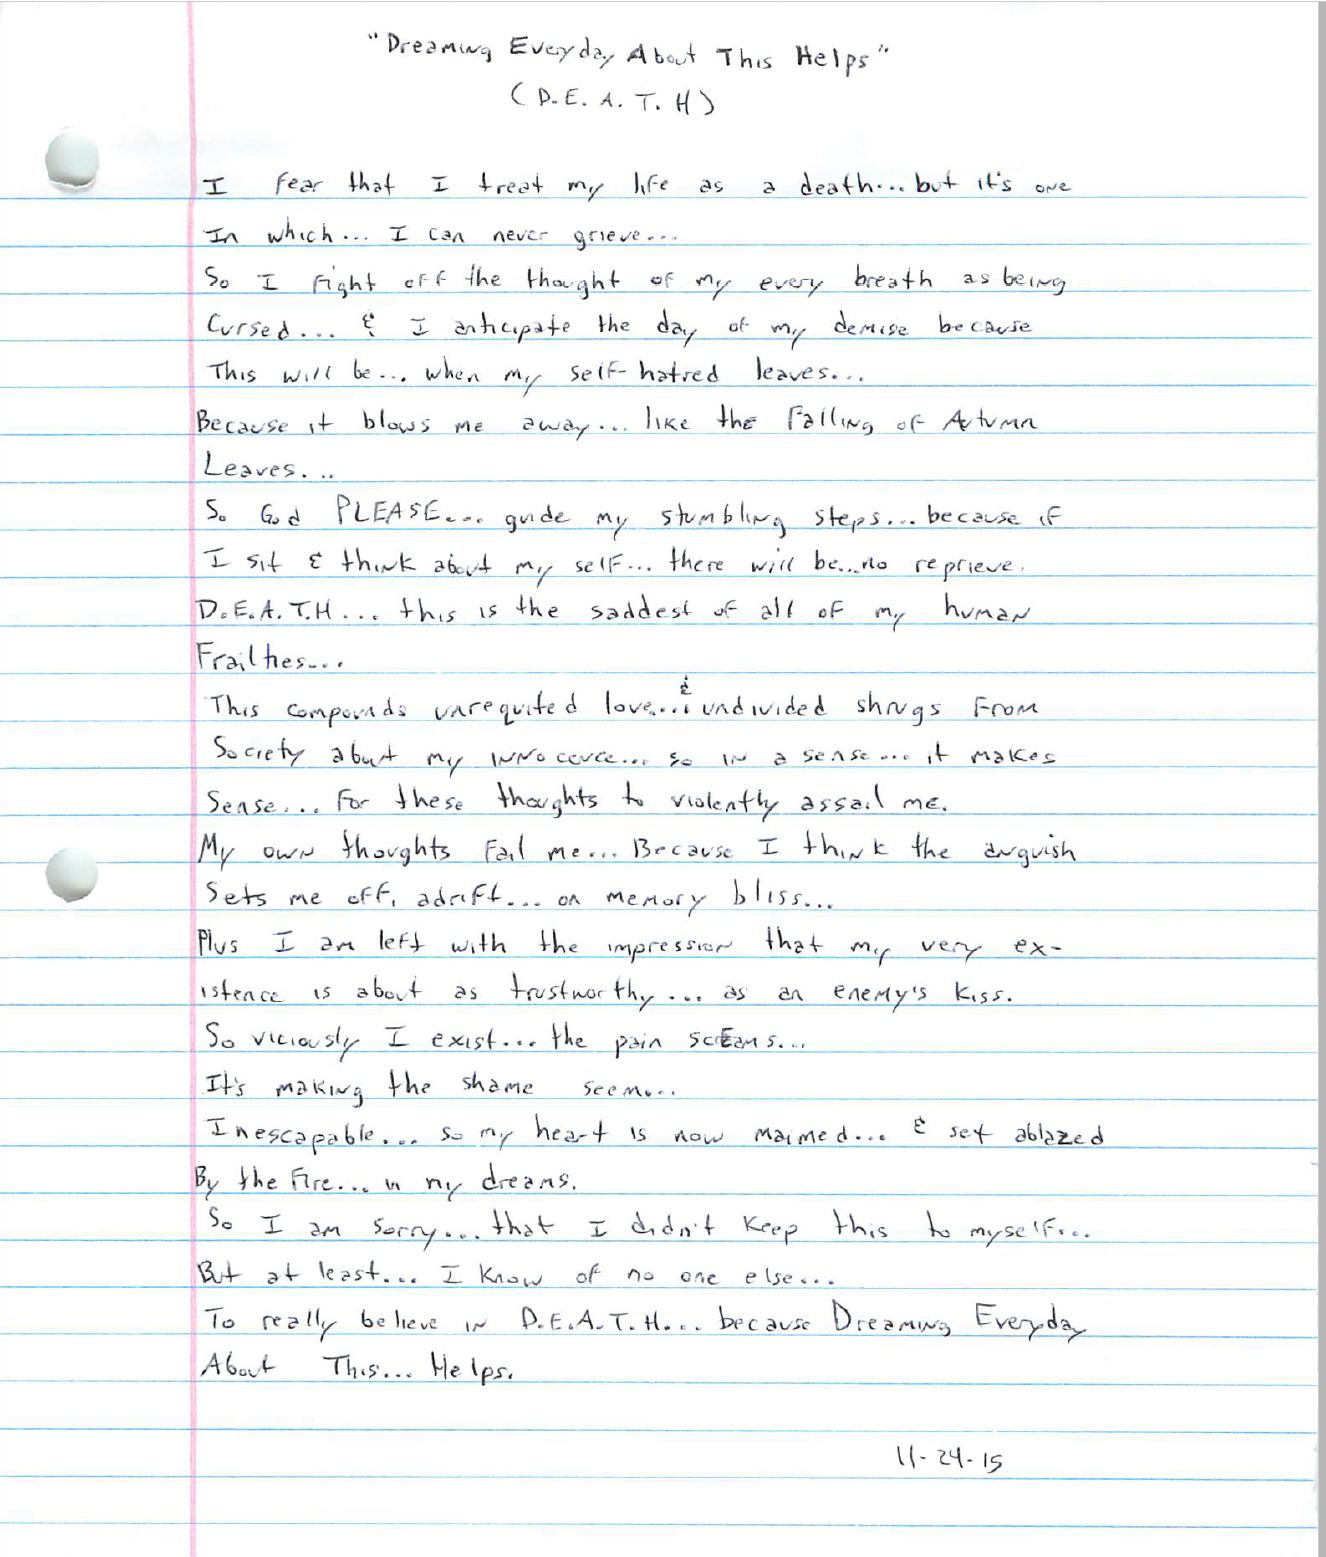 "Dreaming Everyday About This Helps"
(D.E.A.T.H)
I fear that I treat my life as a death... but it's one
In which... I can never grieve...
So I fight off the thought of my every breath as being
Cursed... & I anticipate the day of my demise because
This will be... when my self-hatred leaves...
Because it blows me away... like the falling of Autumn
Leaves...
So God PLEASE.... guide my stumbling steps... because if
I sit & think about my self... there will be...no reprieve.
D.E.A.T.H... this is the saddest of all of my human
Frailties...
This compounds unrequited love.... & undivided shrugs from
Society about my innocence... so in a sense... it makes
Sense... For these thoughts to violently assail me.
My own thoughts fail me... Because I think the anguish
Sets me off, adrift... on memory bliss...
Plus I am left with the impression that my very ex-
istence is about as trustworthy... as an enemy's kiss.
So viciously I exist... the pain screams...
It's making the shame seem...
Inescapable... so my heart is now maimed... & set ablazed
By the fire... in my dreams.
So I am sorry... that I didn't keep this to myself...
But at least... I know of no one else...
To really believe in D.E.A.T.H... because Dreaming Everyday
About This... Helps.
11-24-15